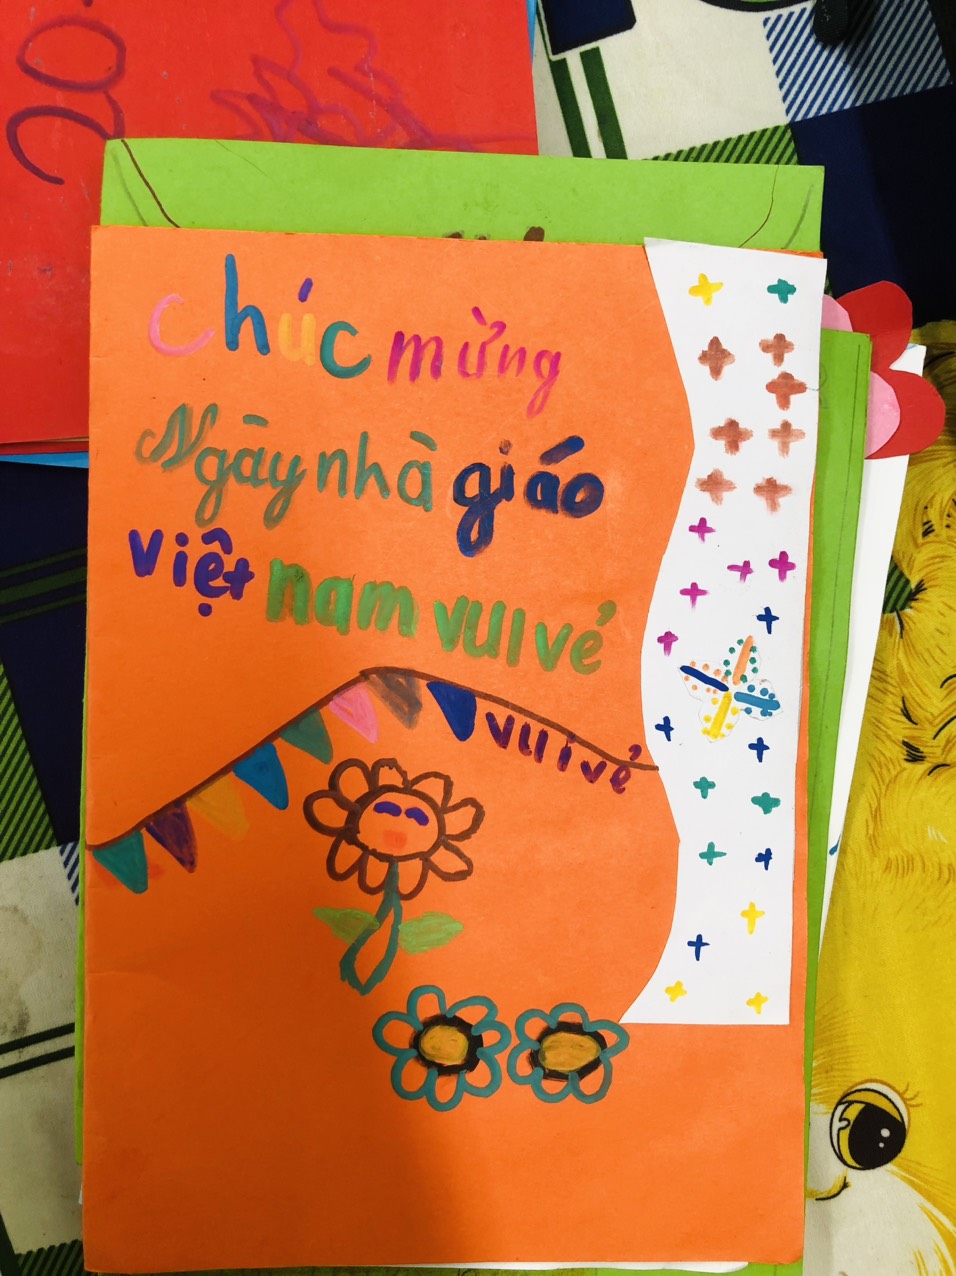 Chúc mừng
Ngày nhà giáo
Việt nam vui vé
vui vé